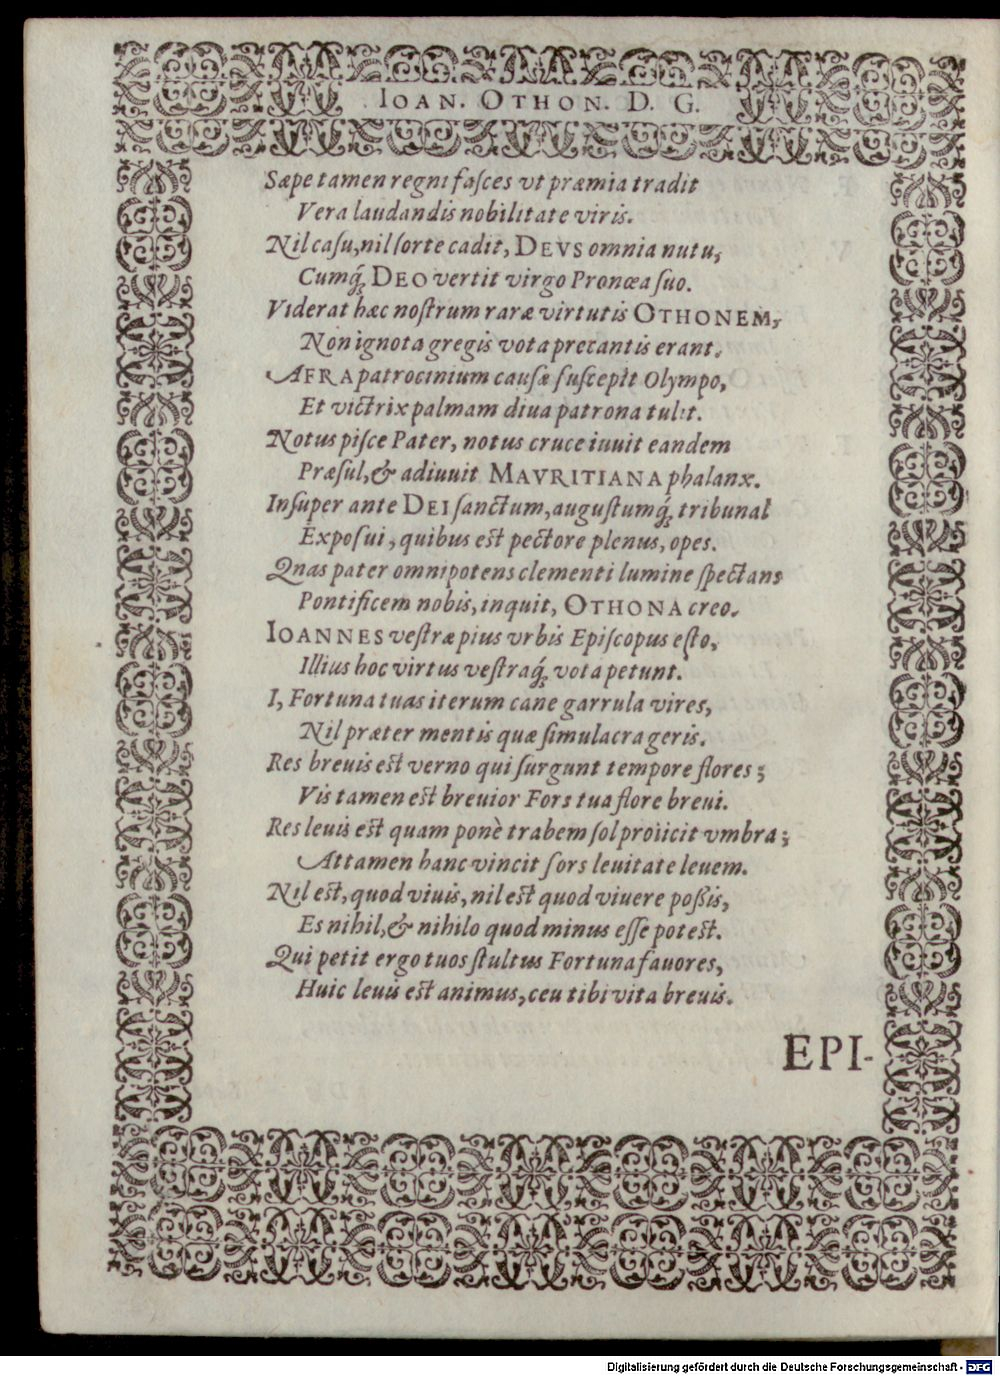 IOAN. OTHON. D. G.
Sæpe tamen regni faſces vt præmia tradit
Vera laudandis nobilitate viris.
Nil caſu, nil ſorte cadit, DEVS omnia nutu,
Cumq́; DEO vertit virgo Pronœa ſuo.
Viderat hæc noſtrum raræ virtutis OTHONEM,
Non ignota gregis vota precantis erant.
AFRA patrocinium cauſæ ſuſcepit Olympo,
Et victrix palmam diua patrona tulit.
Notus piſce Pater, notus cruce iuuit eandem
Præſul, & adiuuit MAVRITIANA phalanx.
Inſuper ante DEI ſanctum, auguſtumq́; tribunal
Expoſui, quibus eſt pectore plenus, opes.
Quas pater omnipotens clementi lumine ſpectans
Pontificem nobis, inquit, OTHONA creo.
IOANNES veſtræ pius vrbis Epiſcopus eſto,
Illius hoc virtus veſtraq́; vota petunt.
I, Fortuna tuas iterum cane garrula vires,
Nil præter mentis quæ ſimulacra geris.
Res breuis eſt verno qui ſurgunt tempore flores;
Vis tamen eſt breuior Fors tua flore breui.
Res leuis eſt quam ponè trabem ſol proiicit vmbra;
Attamen hanc vincit ſors leuitate leuem.
Nil eſt, quod viuis, nil eſt quod viuere poßis,
Es nihil, & nihilo quod minus eſſe poteſt.
Qui petit ergo tuos ſtultus Fortuna fauores,
Huic leuis eſt animus, ceu tibi vita breuis.
EPI-
Digitalisierung gefördert durch die Deutsche Forschungsgemeinschaft - DFG